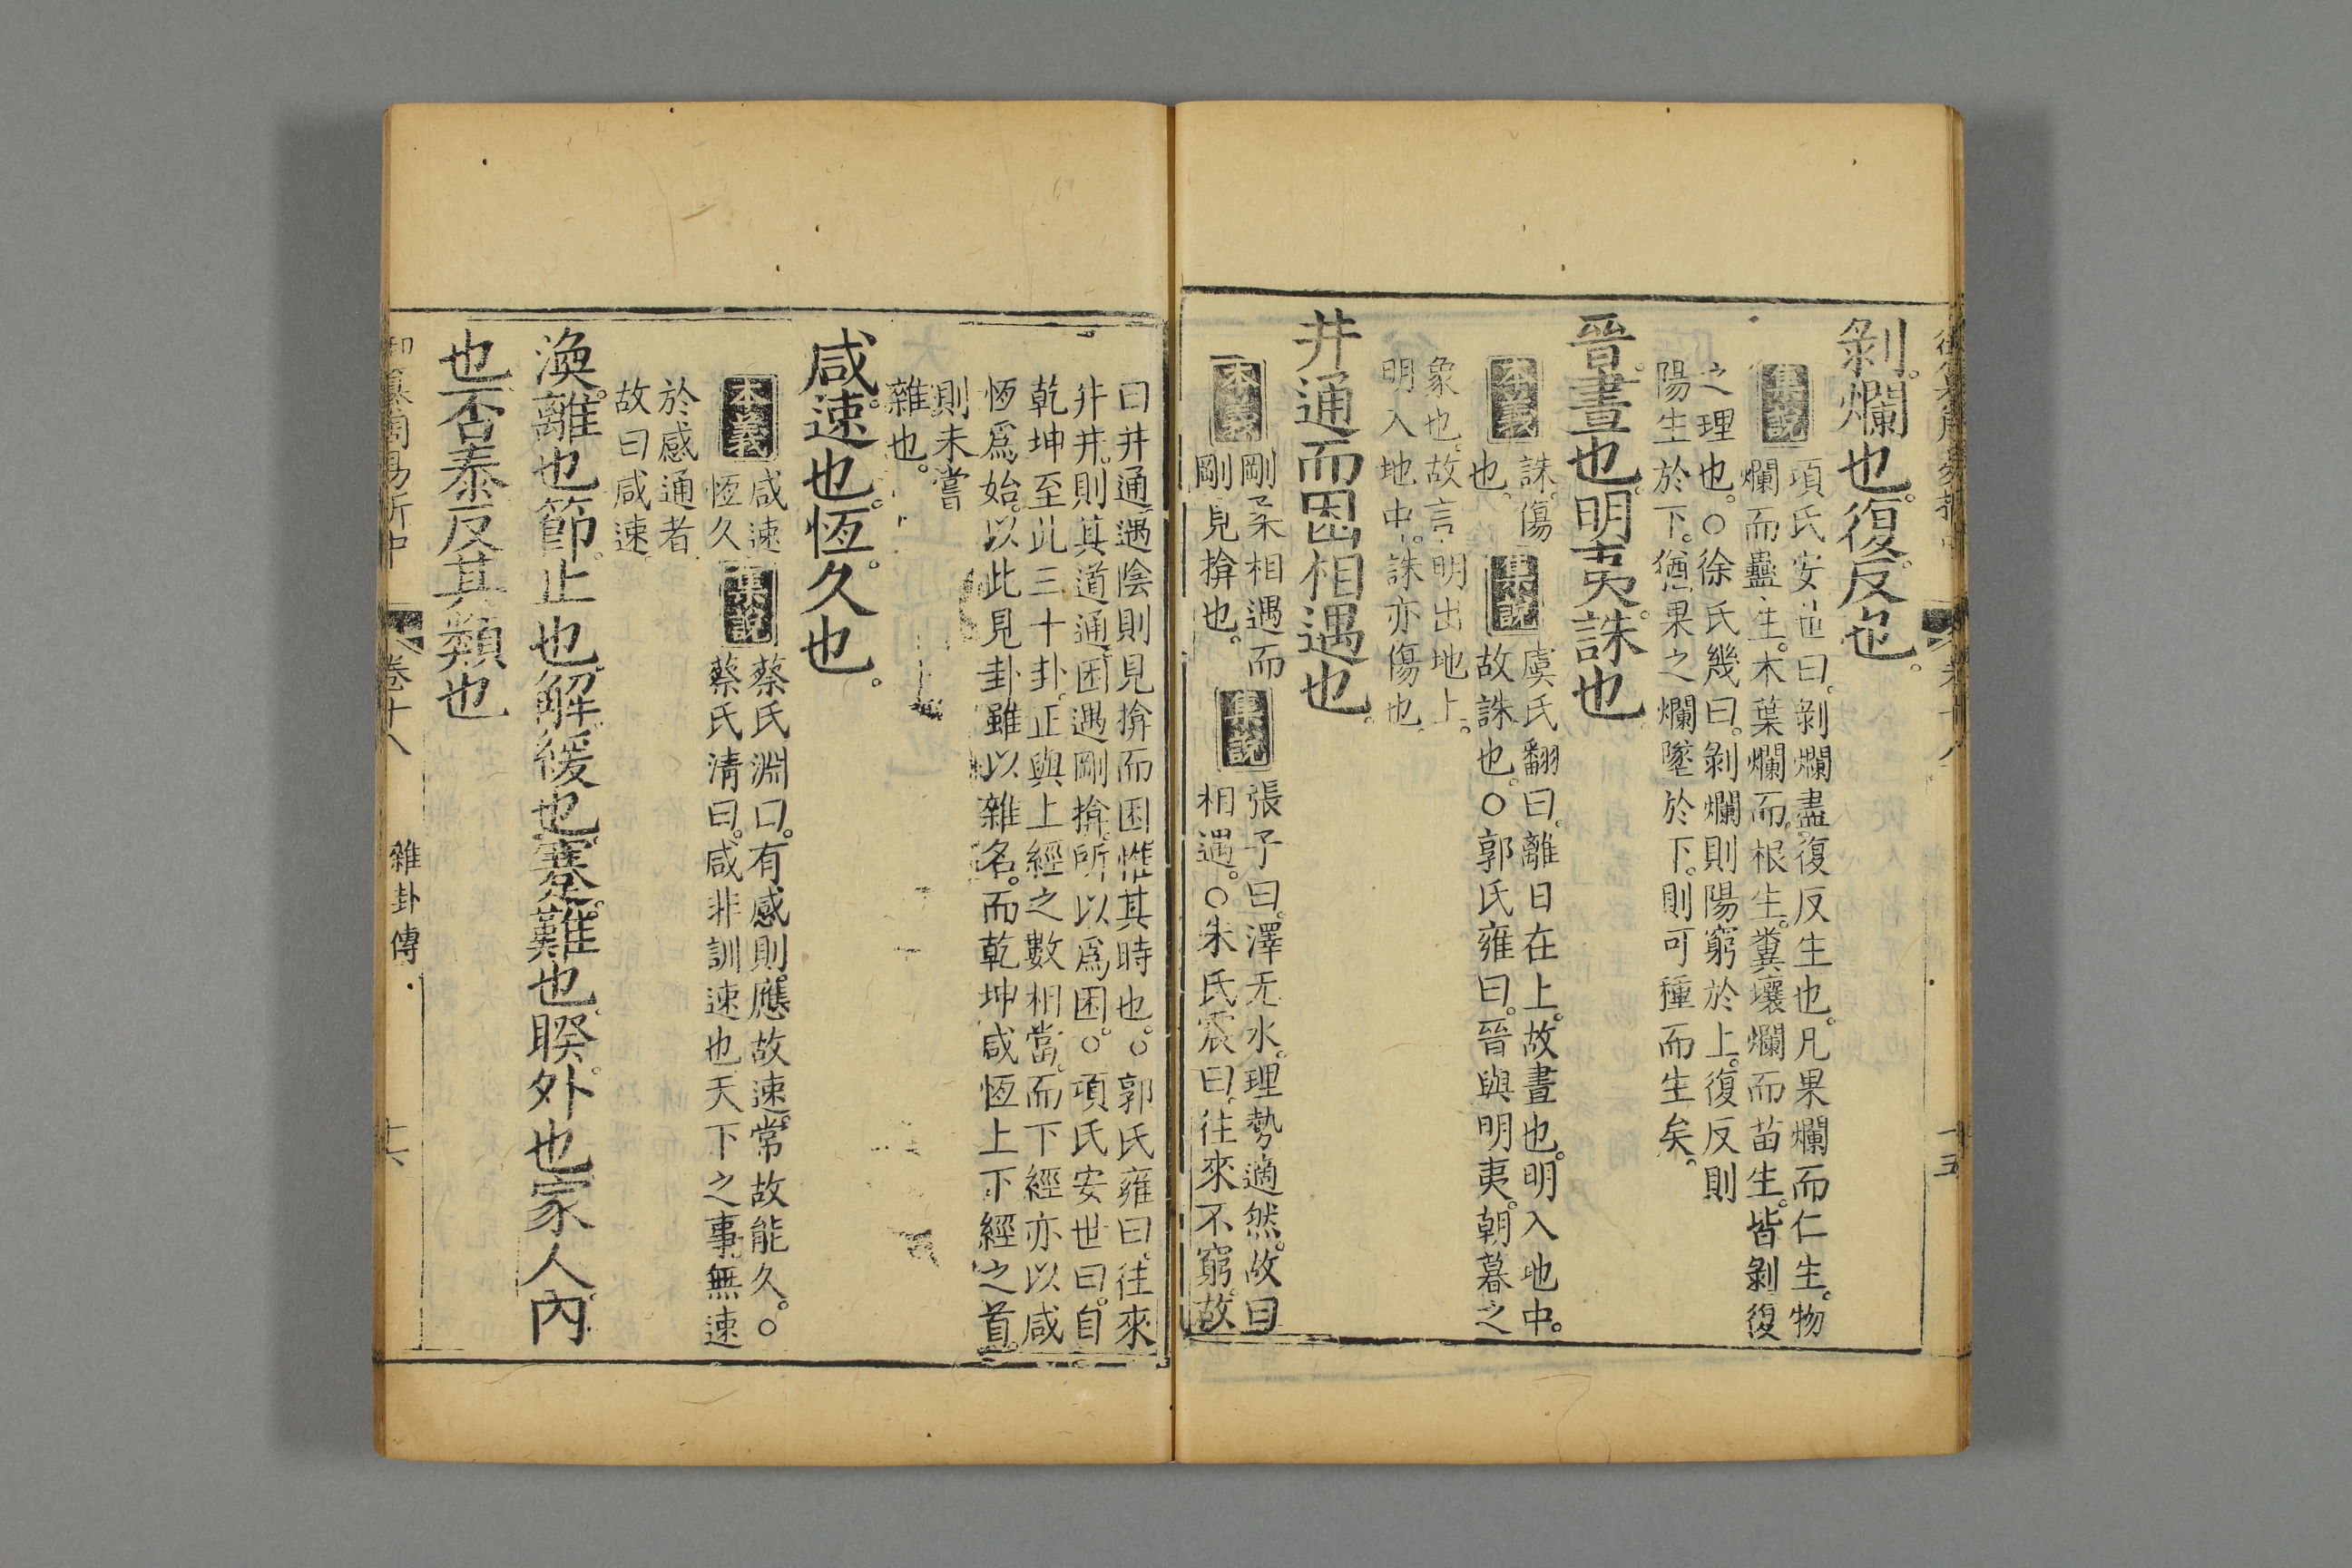 剝爛也。復反也。
集說
項氏安世曰。剝爛盡。復反生也。凡果爛而仁生。物
爛而蠱生。木葉爛而根生。糞壤爛而苗生。皆剝復
之理也。○徐氏幾曰。剝爛則陽窮於上。復反則
陽生於下。猶果之爛墜於下。則可種而生矣。
晉。晝也。明夷誅也。
本義
誅。傷
也。
集說
虞氏翻曰。離日在上。故晝也。明入地中。
故誅也。○郭氏雍曰。晉與明夷。朝暮之
象也。故言明出地上。
明入地中。誅亦傷也。
井通而困相遇也。
本義
剛柔相遇而
剛見揜也。
集說
張子曰。澤无水。理勢適然。故曰
相遇。○朱氏震曰。往來不窮。故
曰井通。遇陰則見揜而困。惟其時也。○郭氏雍曰。往來
井井。則其道通。困遇剛揜。所以爲困。○項氏安世曰。自
乾坤至此三十卦。正與上經之數相當。而下經亦以咸
恆爲始。以此見卦雖以雜名。而乾坤咸恆上下經之首。
則未嘗
雜也。
咸。速也。恆。久也。
本義
咸速
恆久
集說
蔡氏淵曰。有感則應。故速。常故能久。○
蔡氏清曰。咸非訓速也。天下之事。無速
於感通者
故曰咸速。
渙。離也。節。止也。解。緩也。蹇。難也。睽。外也。家人內
也。否泰反其類也
卷十八 雜卦傳 十六